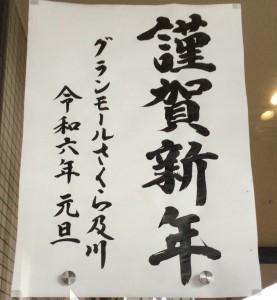 謹賀新年
グランモールさくら及川
令和六年 元旦